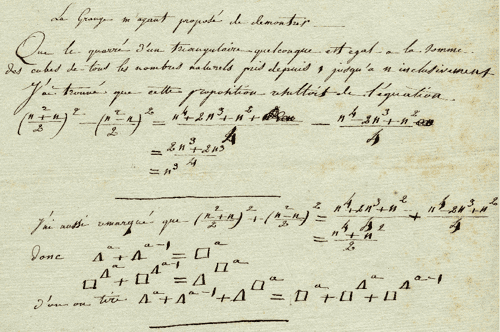 La Grange m'ayant proposé de demontrer
Que le quarré d'un triangulaire quelconque est egal a la somme
des cubes de tous les nombres naturels pris depuis 1 jusqu'a n inclusivement
J'ai trouvé que cette proposition resultoit de l'équation
(n²+n/2)² - (n²-n/2)² = n⁴+2n³+n²/4 - n⁴-2n³+n²/4
= 2n³+2n³/4
= n³
J'ai aussi remarqué que (n²+n/2)² + (n²-n/2)² = n⁴+2n³+n²/4 + n⁴-2n³+n²/4
= n⁴+n²/2
donc Δᵃ + Δᵃ⁻¹ = □ᵃ
□^Δᵃ + □^Δᵃ⁻¹ = Δ^□ᵃ
d'on tire Δᵃ + Δᵃ⁻¹ + Δ^□ᵃ = □ᵃ + □^Δᵃ + □^Δᵃ⁻¹